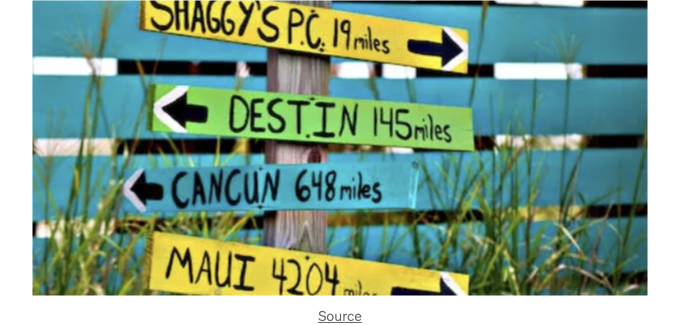 SHAGGY'S P.C. 19 miles
DESTIN 145 miles
CANCUN 648 miles
MAUI 4204 miles
Source